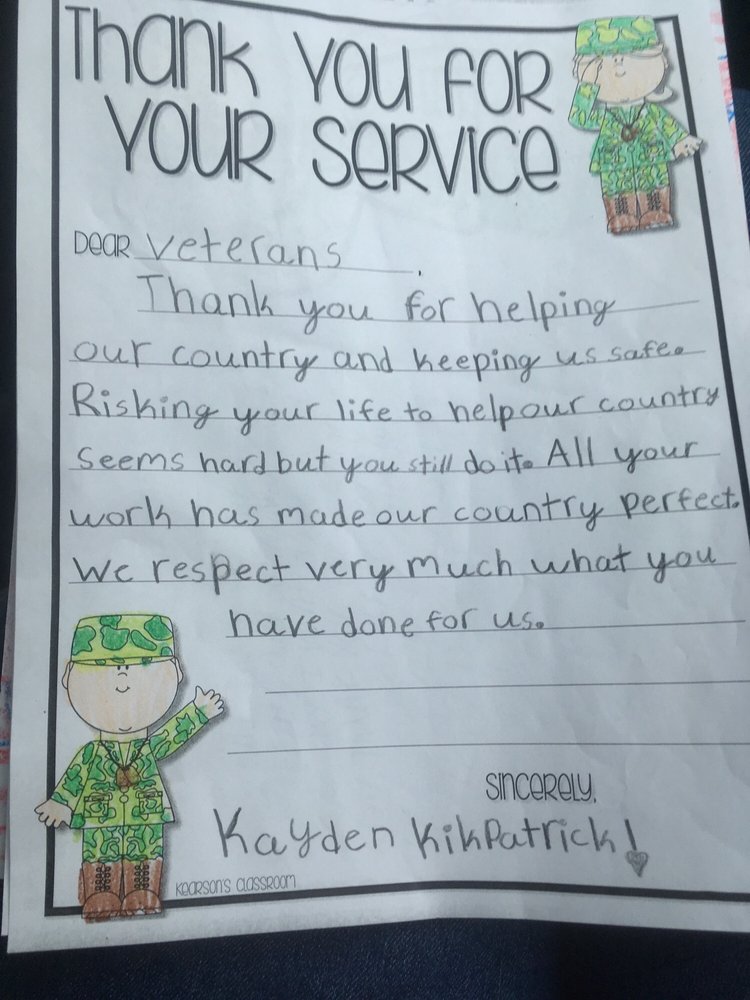 Thank you for
your service
Dear Veterans,
Thank you for helping
our country and keeping us safe.
Risking your life to help our country
seems hard but you still do it. All your
work has made our country perfect.
We respect very much what you
have done for us.
Sincerely,
Kayden KikPatrick!
Kearson's Classroom